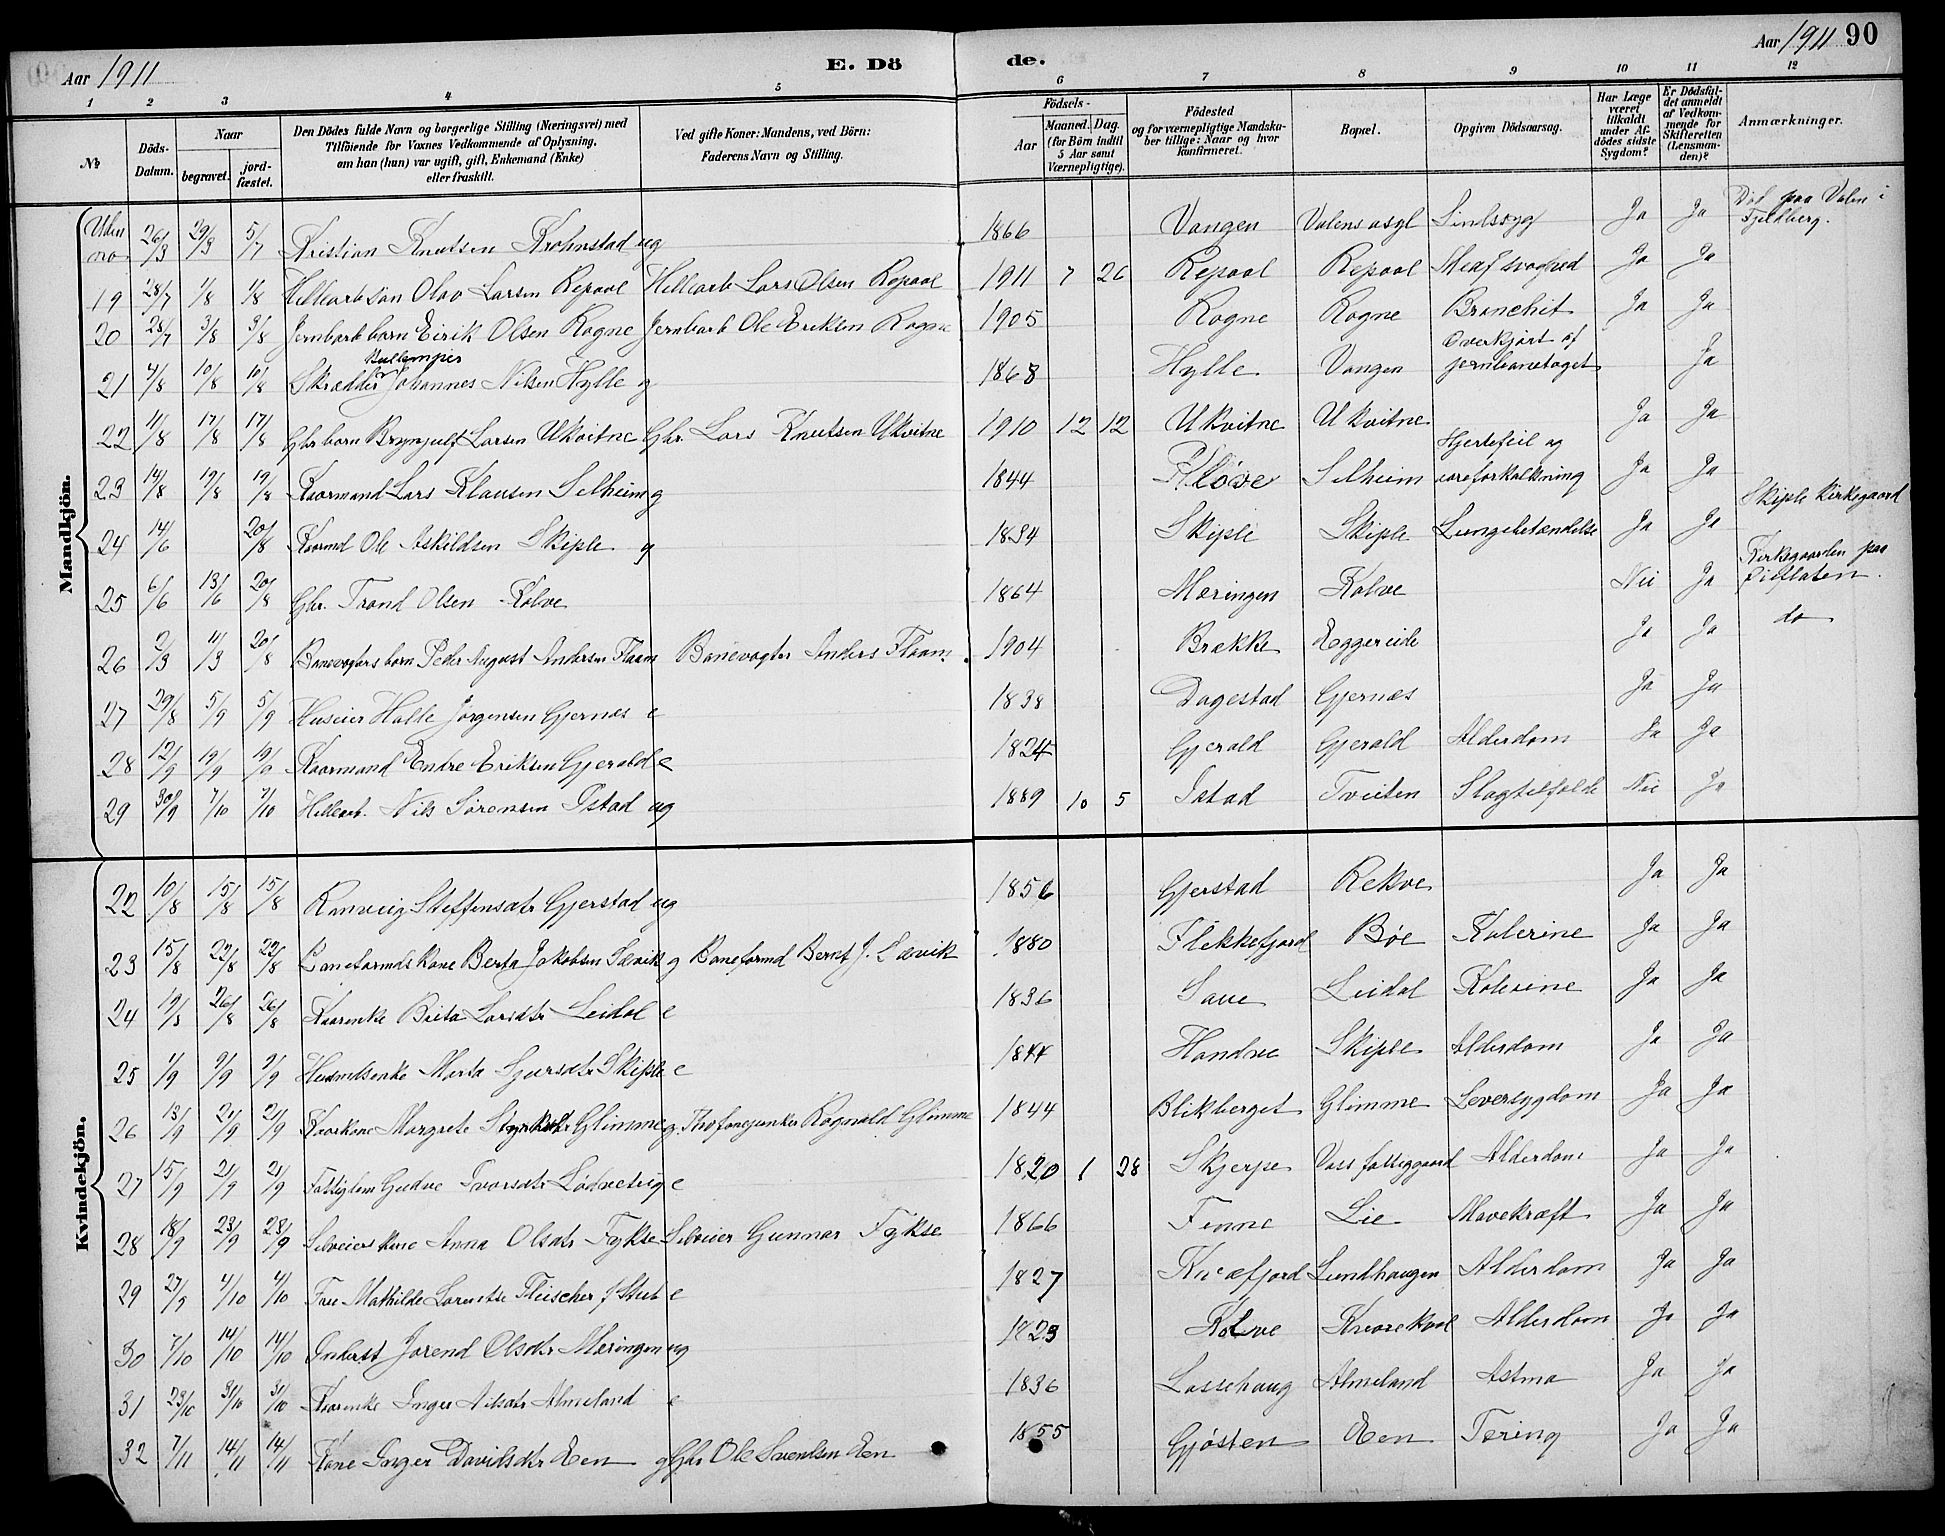 Aar 1911 E. Dö
de. Aar 1911 90
1 2 3 4 5 6 7 8 9 10 11 12
No Döds-Datum. Naar begravet. jord-fæstet. Den Dödes fulde Navn og borgerlige Stilling (Næringsvei) med Tilföiende for Voxnes Vedkommende af Oplysning, om han (hun) var ugift, gift, Enkemand (Enke) eller fraskilt. Ved gifte Koner: Mandens, ved Börn: Faderens Navn og Stilling. Födsels- Aar Maaned. Dag. (for Börn indtil 5 Aar samt Værnepligtige). Födested og for værnepligtige Mandskaber tillige: Naar og hvor konfirmeret. Bopæl. Opgiven Dödsaarsag. Har Læge været tilkaldt under Afdödes sidste Sygdom? Er Dödsfaldet anmeldt af Vedkommende for Skifteretten (Lensmanden)? Anmærkninger.
Mandkjön.
Uden no 26/3 29/3 5/7 Kristian Knutsen Krohnstad ug 1866 Vangen Valens asyl Sindssyg Ja Ja Död paa Valen i Fjeldberg.
19 28/7 1/8 1/8 Hellearb sön Olav Larsen Repaal Hellearb Lars Olsen Repaal 1911 7 26 Repaal Repaal Ja Ja
20 28/7 3/8 3/8 Jernbarb barn Eirik Olsen Rogne Jernbarb Ole Eriksen Rogne 1905 Rogne Rogne Bronchit Ja Ja
21 4/8 10/8 10/8 Skrædder Johannes Nilsen Hylle g 1868 Hylle Vangen Overkjørt af jernbanetoget Ja
22 11/8 17/8 17/8 Gbr barn Brynjulf Larsen Ukvitne Gbr. Lars Knutsen Ukvitne 1910 12 12 Ukvitne Ukvitne Ja Ja
23 14/8 19/8 19/8 Kaarmand Lars Klausen Selheim g 1844 Kløve Selheim Hjertefeil og aareforkalkning Ja Ja
24 14/6 20/8 Kaarmd Ole Askildsen Skiple g 1834 Skiple Skiple Lungebetændelse Ja Ja Skiple Kirkegaard
25 6/6 13/6 20/8 Gbr. Trond Olsen Kolve 1864 Mæringen Kolve Nei Ja Kirkegaarden paa Øieflaten.
26 2/3 11/3 20/8 Banevogters barn Peder August Andersen Flaam Banevogter Anders Flaam. 1904 Brække Eggereide Ja Ja do
27 29/8 5/9 5/9 Huseier Halle Jörgensen Gjernes e 1838 Dagestad Gjernæs Ja Ja
28 12/9 19/9 19/9 Kaarmand Endre Eriksen Gjerald e 1824 Gjerald Gjerald Alderdom Ja Ja
29 30/9 7/10 7/10 Hellearb. Nils Sørensen Istad ug 1889 10 5 Istad Tveiten Slagtilfælde Nei Ja
Kvindekjön.
22 10/8 15/8 15/8 Ranveig Steffensdtr Gjerstad ug 1856 Gjerstad Rekve Ja Ja
23 15/8 22/8 22/8 Baneformdskone Berta Jakobsen Sævik g Baneformd Bernt J. Sævik 1880 Flekkefjord Bøe Kolerine Ja Ja
24 19/8 26/8 26/8 Kaarenke Brita Larsdtr Leidal e 1836 Saue Leidal Kolerine Ja Ja
25 1/9 9/9 9/9 Marta Sjursdtr Skiple e 1844 Handve Skiple Alderdom Ja Ja
26 13/9 21/9 21/9 Kaarkone Margrete Styrksdtr Glimme g. Thv fanejunker Rognald Glimme 1844 Blikberget Glimme Leversygdom Ja Ja
27 15/9 21/9 21/9 Fattiglem Gudve Ivarsdtr Lødvetveg e 1820 1 28 Skjerpe Voss fattiggaard Alderdom Ja Ja
28 18/9 23/9 23/9 Selveiers kone Anna Olsdtr Fykse Selveier Gunnar Fykse 1866 Finne Lie Mavekræft Ja Ja
29 27/9 4/10 4/10 Frue Mathilde Lorentse Fleischer f. Stub e 1827 Kvæfjord Lundhaugen Alderdom Ja Ja
30 7/10 14/10 14/10 Inderst Jorend Olsdtr Mæringen ug 1823 Kolve Kvarekval Alderdom Ja Ja
31 23/10 31/10 31/10 Kaarenke Inger Nilsdtr Almeland e 1836 Lassehaug Almeland Astma Ja Ja
32 7/11 14/11 14/11 Kone Inger Davidsdtr Een g Gbr Ole Svendsen Een 1855 Gjøsten Een Tæring Ja Ja